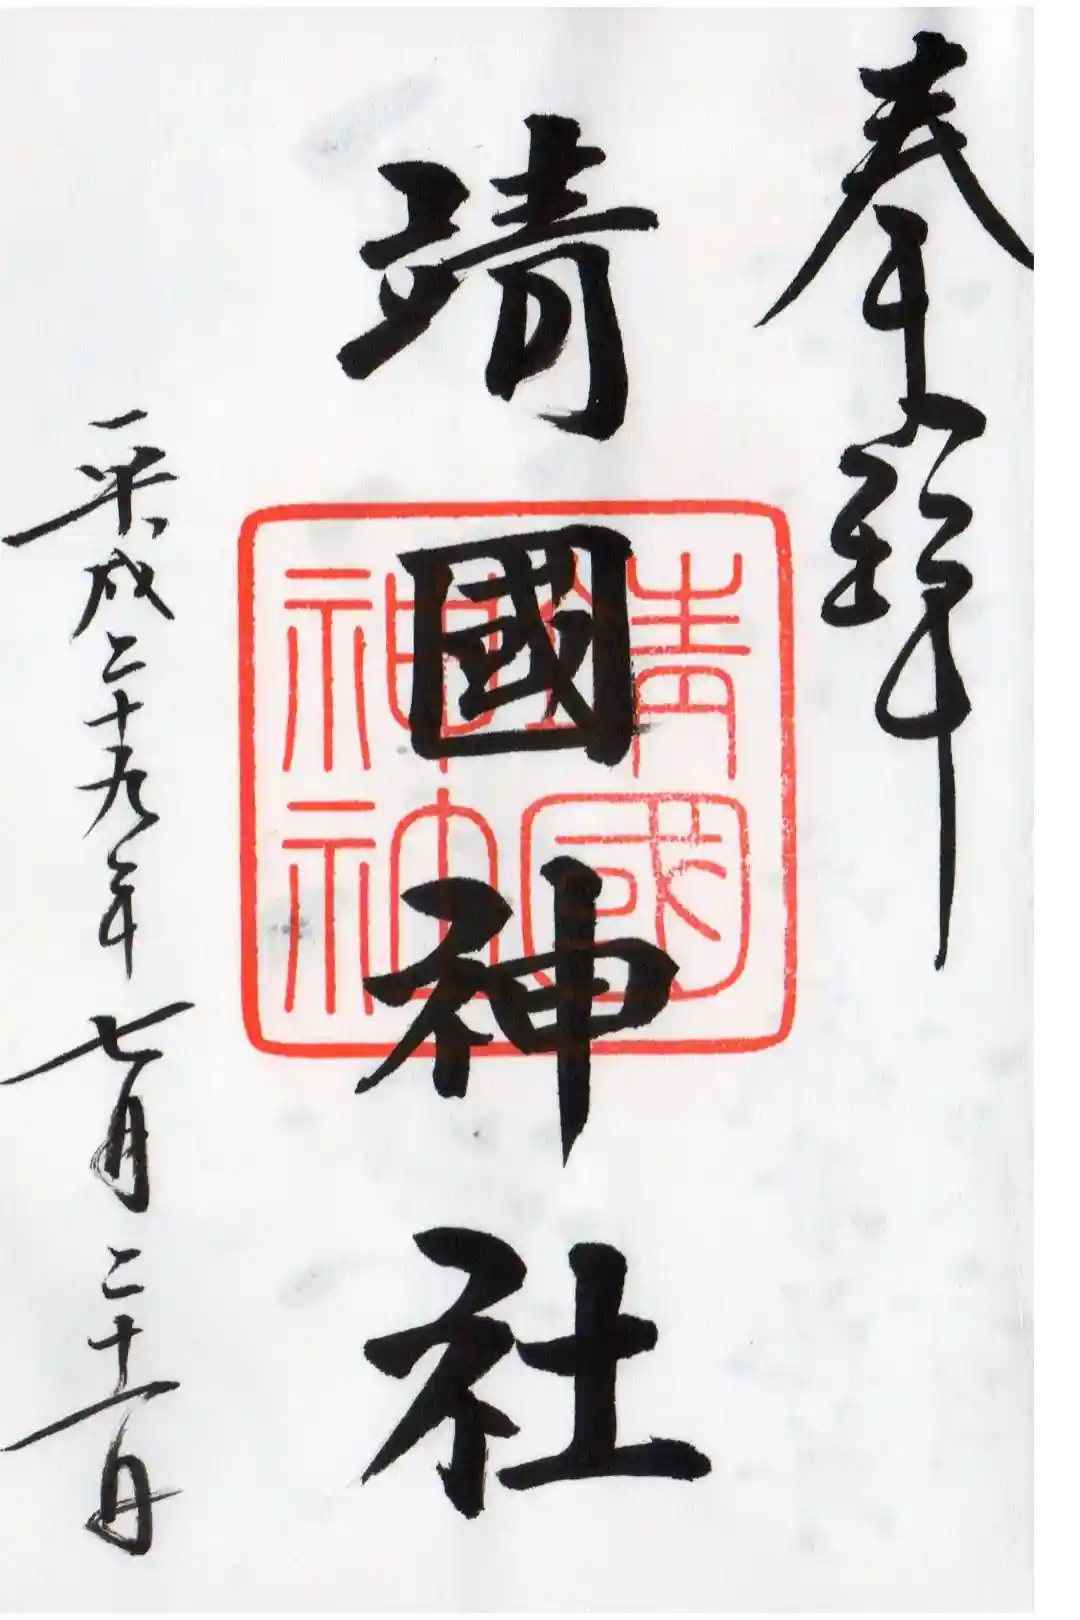 奉拝
靖國神社
靖國
神社
平成二十九年七月二十一日